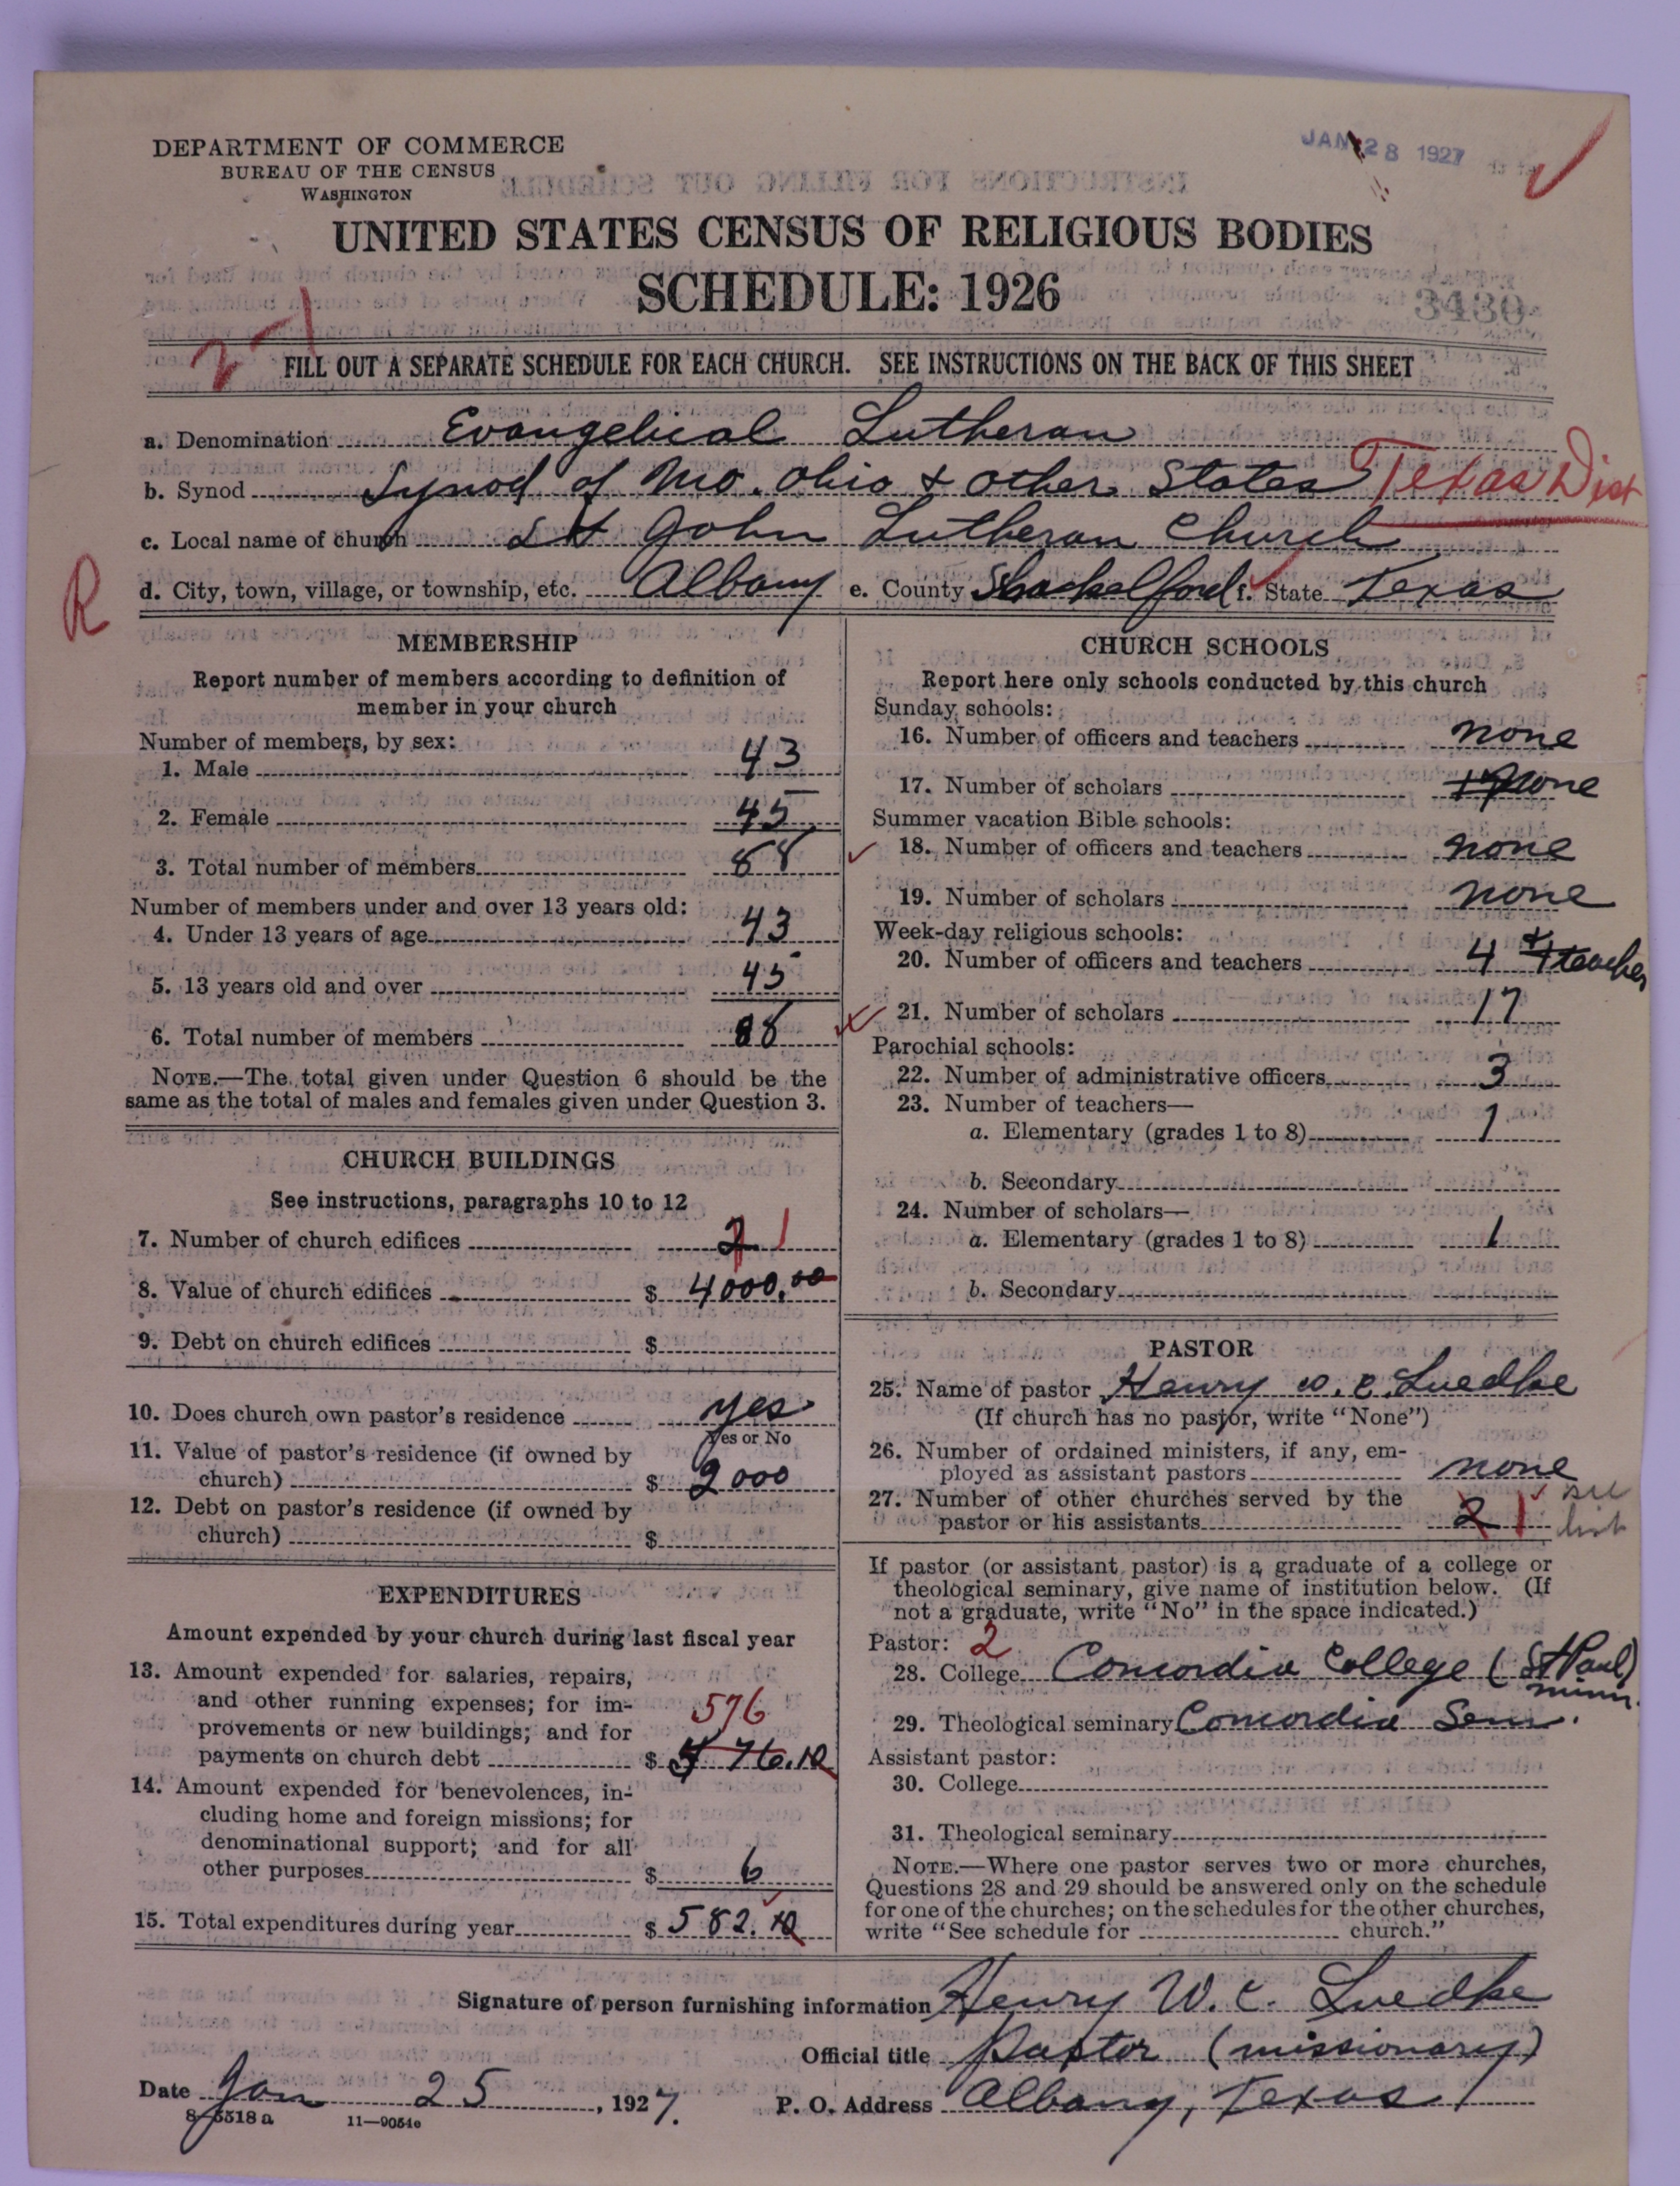 DEPARTMENT OF COMMERCE
BUREAU OF THE CENSUS
WASHINGTON
JAN 28 1927
UNITED STATES CENSUS OF RELIGIOUS BODIES
SCHEDULE: 1926
3430
FILL OUT A SEPARATE SCHEDULE FOR EACH CHURCH. SEE INSTRUCTIONS ON THE BACK OF THIS SHEET
a. Denomination Evangelical Lutheran
b. Synod Synod of Mo. Ohio & other States Texas Dist
c. Local name of church St John Lutheran Church
R
d. City, town, village, or township, etc. Albany e. County Shackelford f. State Texas
MEMBERSHIP
Report number of members according to definition of
member in your church
Number of members, by sex:
1. Male 43
2. Female 45
3. Total number of members 88
Number of members under and over 13 years old:
4. Under 13 years of age 43
5. 13 years old and over 45
6. Total number of members 88
NOTE.—The total given under Question 6 should be the
same as the total of males and females given under Question 3.
CHURCH BUILDINGS
See instructions, paragraphs 10 to 12
7. Number of church edifices 2 1
8. Value of church edifices $ 4000.00
9. Debt on church edifices $
10. Does church own pastor's residence yes
Yes or No
11. Value of pastor's residence (if owned by
church) $ 2000
12. Debt on pastor's residence (if owned by
church) $
EXPENDITURES
Amount expended by your church during last fiscal year
13. Amount expended for salaries, repairs,
and other running expenses; for im-
provements or new buildings; and for
payments on church debt $ 576.10
576
14. Amount expended for benevolences, in-
cluding home and foreign missions; for
denominational support; and for all
other purposes $ 6
15. Total expenditures during year $ 582.10
CHURCH SCHOOLS
Report here only schools conducted by this church
Sunday schools:
16. Number of officers and teachers none
17. Number of scholars 17 none
Summer vacation Bible schools:
18. Number of officers and teachers none
19. Number of scholars none
Week-day religious schools:
20. Number of officers and teachers 4 & 1 teacher
21. Number of scholars 17
Parochial schools:
22. Number of administrative officers 3
23. Number of teachers—
a. Elementary (grades 1 to 8) 1
b. Secondary
24. Number of scholars—
a. Elementary (grades 1 to 8) 1
b. Secondary
PASTOR
25. Name of pastor Henry W. C. Luedke
(If church has no pastor, write "None")
26. Number of ordained ministers, if any, em-
ployed as assistant pastors none
27. Number of other churches served by the
pastor or his assistants 2 1 see list
If pastor (or assistant pastor) is a graduate of a college or
theological seminary, give name of institution below. (If
not a graduate, write "No" in the space indicated.)
Pastor: 2
28. College Concordia College (St Paul)
Minn.
29. Theological seminary Concordia Sem.
Assistant pastor:
30. College
31. Theological seminary
NOTE.—Where one pastor serves two or more churches,
Questions 28 and 29 should be answered only on the schedule
for one of the churches; on the schedules for the other churches,
write "See schedule for church."
Signature of person furnishing information Henry W. C. Luedke
Official title Pastor (missionary)
Date Jan 25, 1927. P. O. Address Albany, Texas
8-5518 a 11—9054e